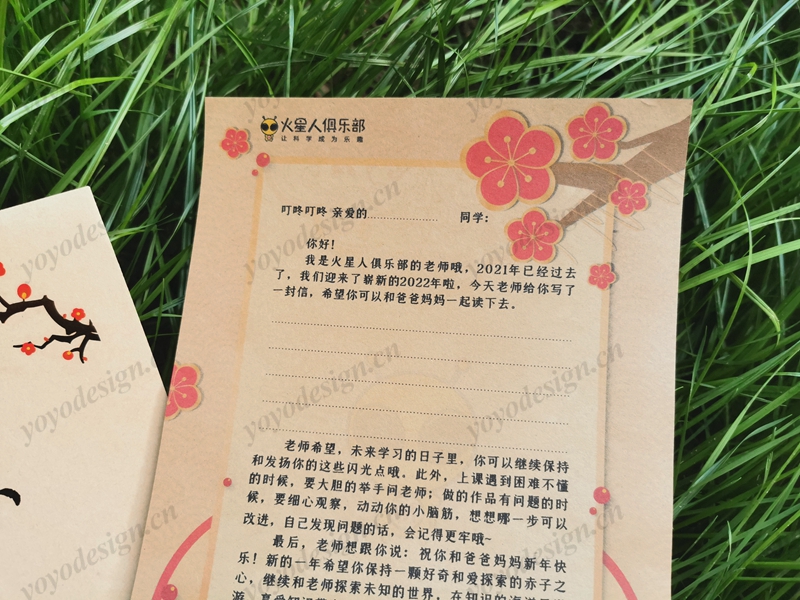 火星人俱乐部
让科学成为乐趣
叮咚叮咚 亲爱的………………… 同学：
你好！
我是火星人俱乐部的老师哦，2021年已经过去
了，我们迎来了崭新的2022年啦，今天老师给你写了
一封信，希望你可以和爸爸妈妈一起读下去。
老师希望，未来学习的日子里，你可以继续保持
和发扬你的这些闪光点哦。此外，上课遇到困难不懂
的时候，要大胆的举手问老师；做的作品有问题的时
候，要细心观察，动动你的小脑筋，想想哪一步可以
改进，自己发现问题的话，会记得更牢哦~
最后，老师想跟你说：祝你和爸爸妈妈新年快
乐！新的一年希望你保持一颗好奇和爱探索的赤子之
心，继续和老师探索未知的世界，在知识的海洋
yoyodesign.cn